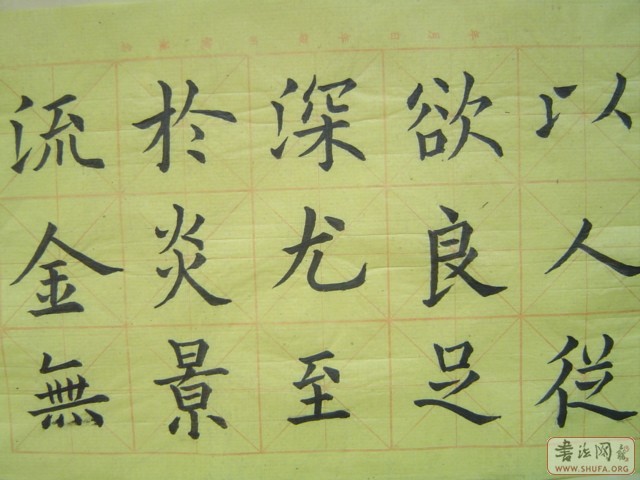 以人從
欲良足
深尤至
於炎景
流金無
書法网
WWW.SHUFA.ORG